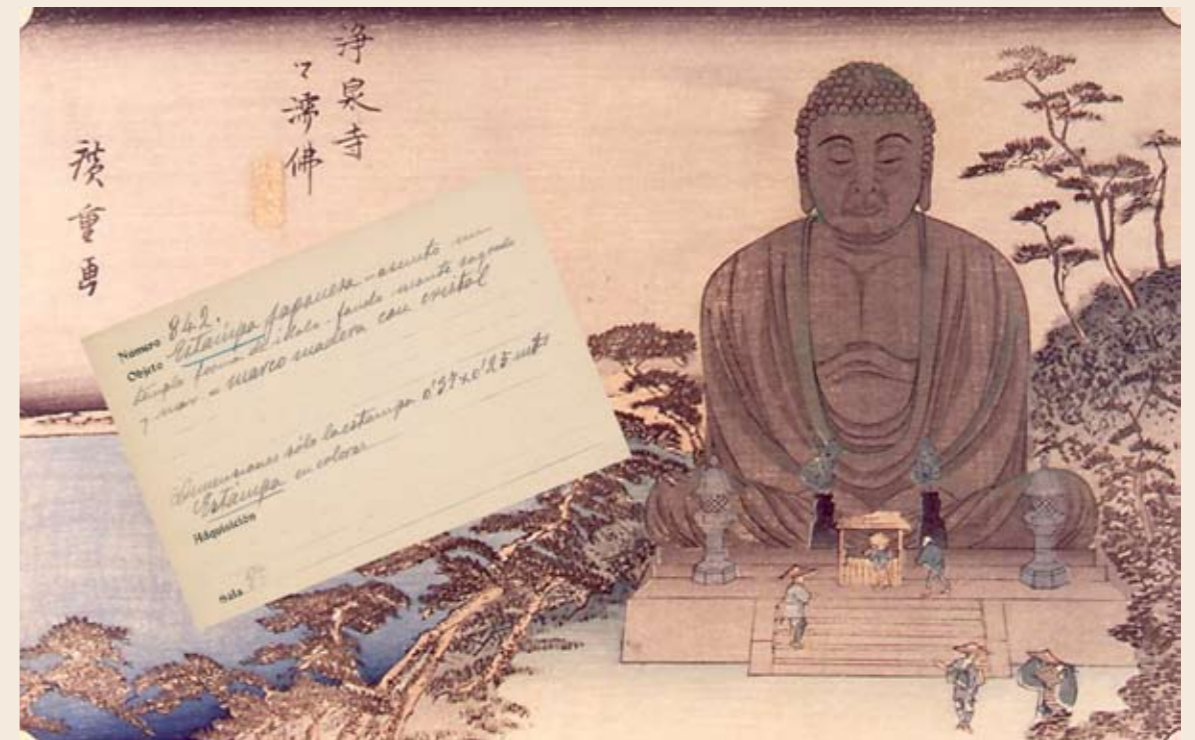 浄泉寺
濡佛
廣重画
Numero 842.
Objeto Estampa Japonesa - asunto un
templo forma de idolo - fondo monte sagrado
y mar = marco madera con cristal
Dimensiones sólo la estampa 0'37 x 0'25 mts
Estampa en colores
Adquisición
Sala